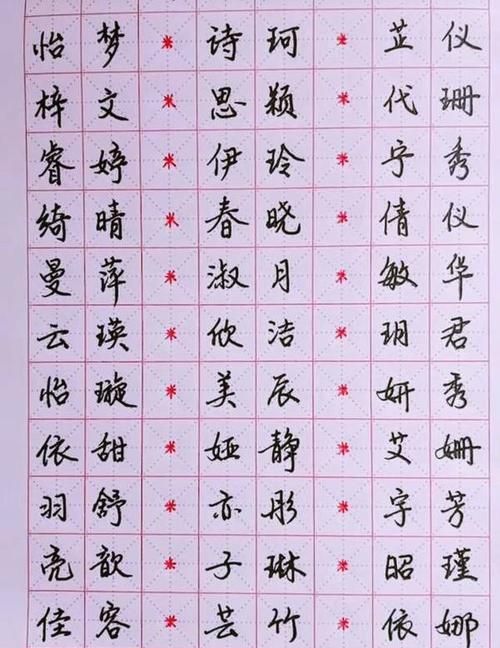 怡梦 * 诗珂 * 芷仪
梓文 * 思颖 * 代珊
睿婷 * 伊玲 * 宁秀
绮晴 * 春晓 * 倩仪
曼萍 * 淑月 * 敏华
云瑛 * 欣洁 * 玥君
怡璇 * 美辰 * 妍秀
依甜 * 娅静 * 艾姗
羽舒 * 亦彤 * 宇芳
亮歆 * 子琳 * 昭瑾
佳容 * 芸竹 * 依娜